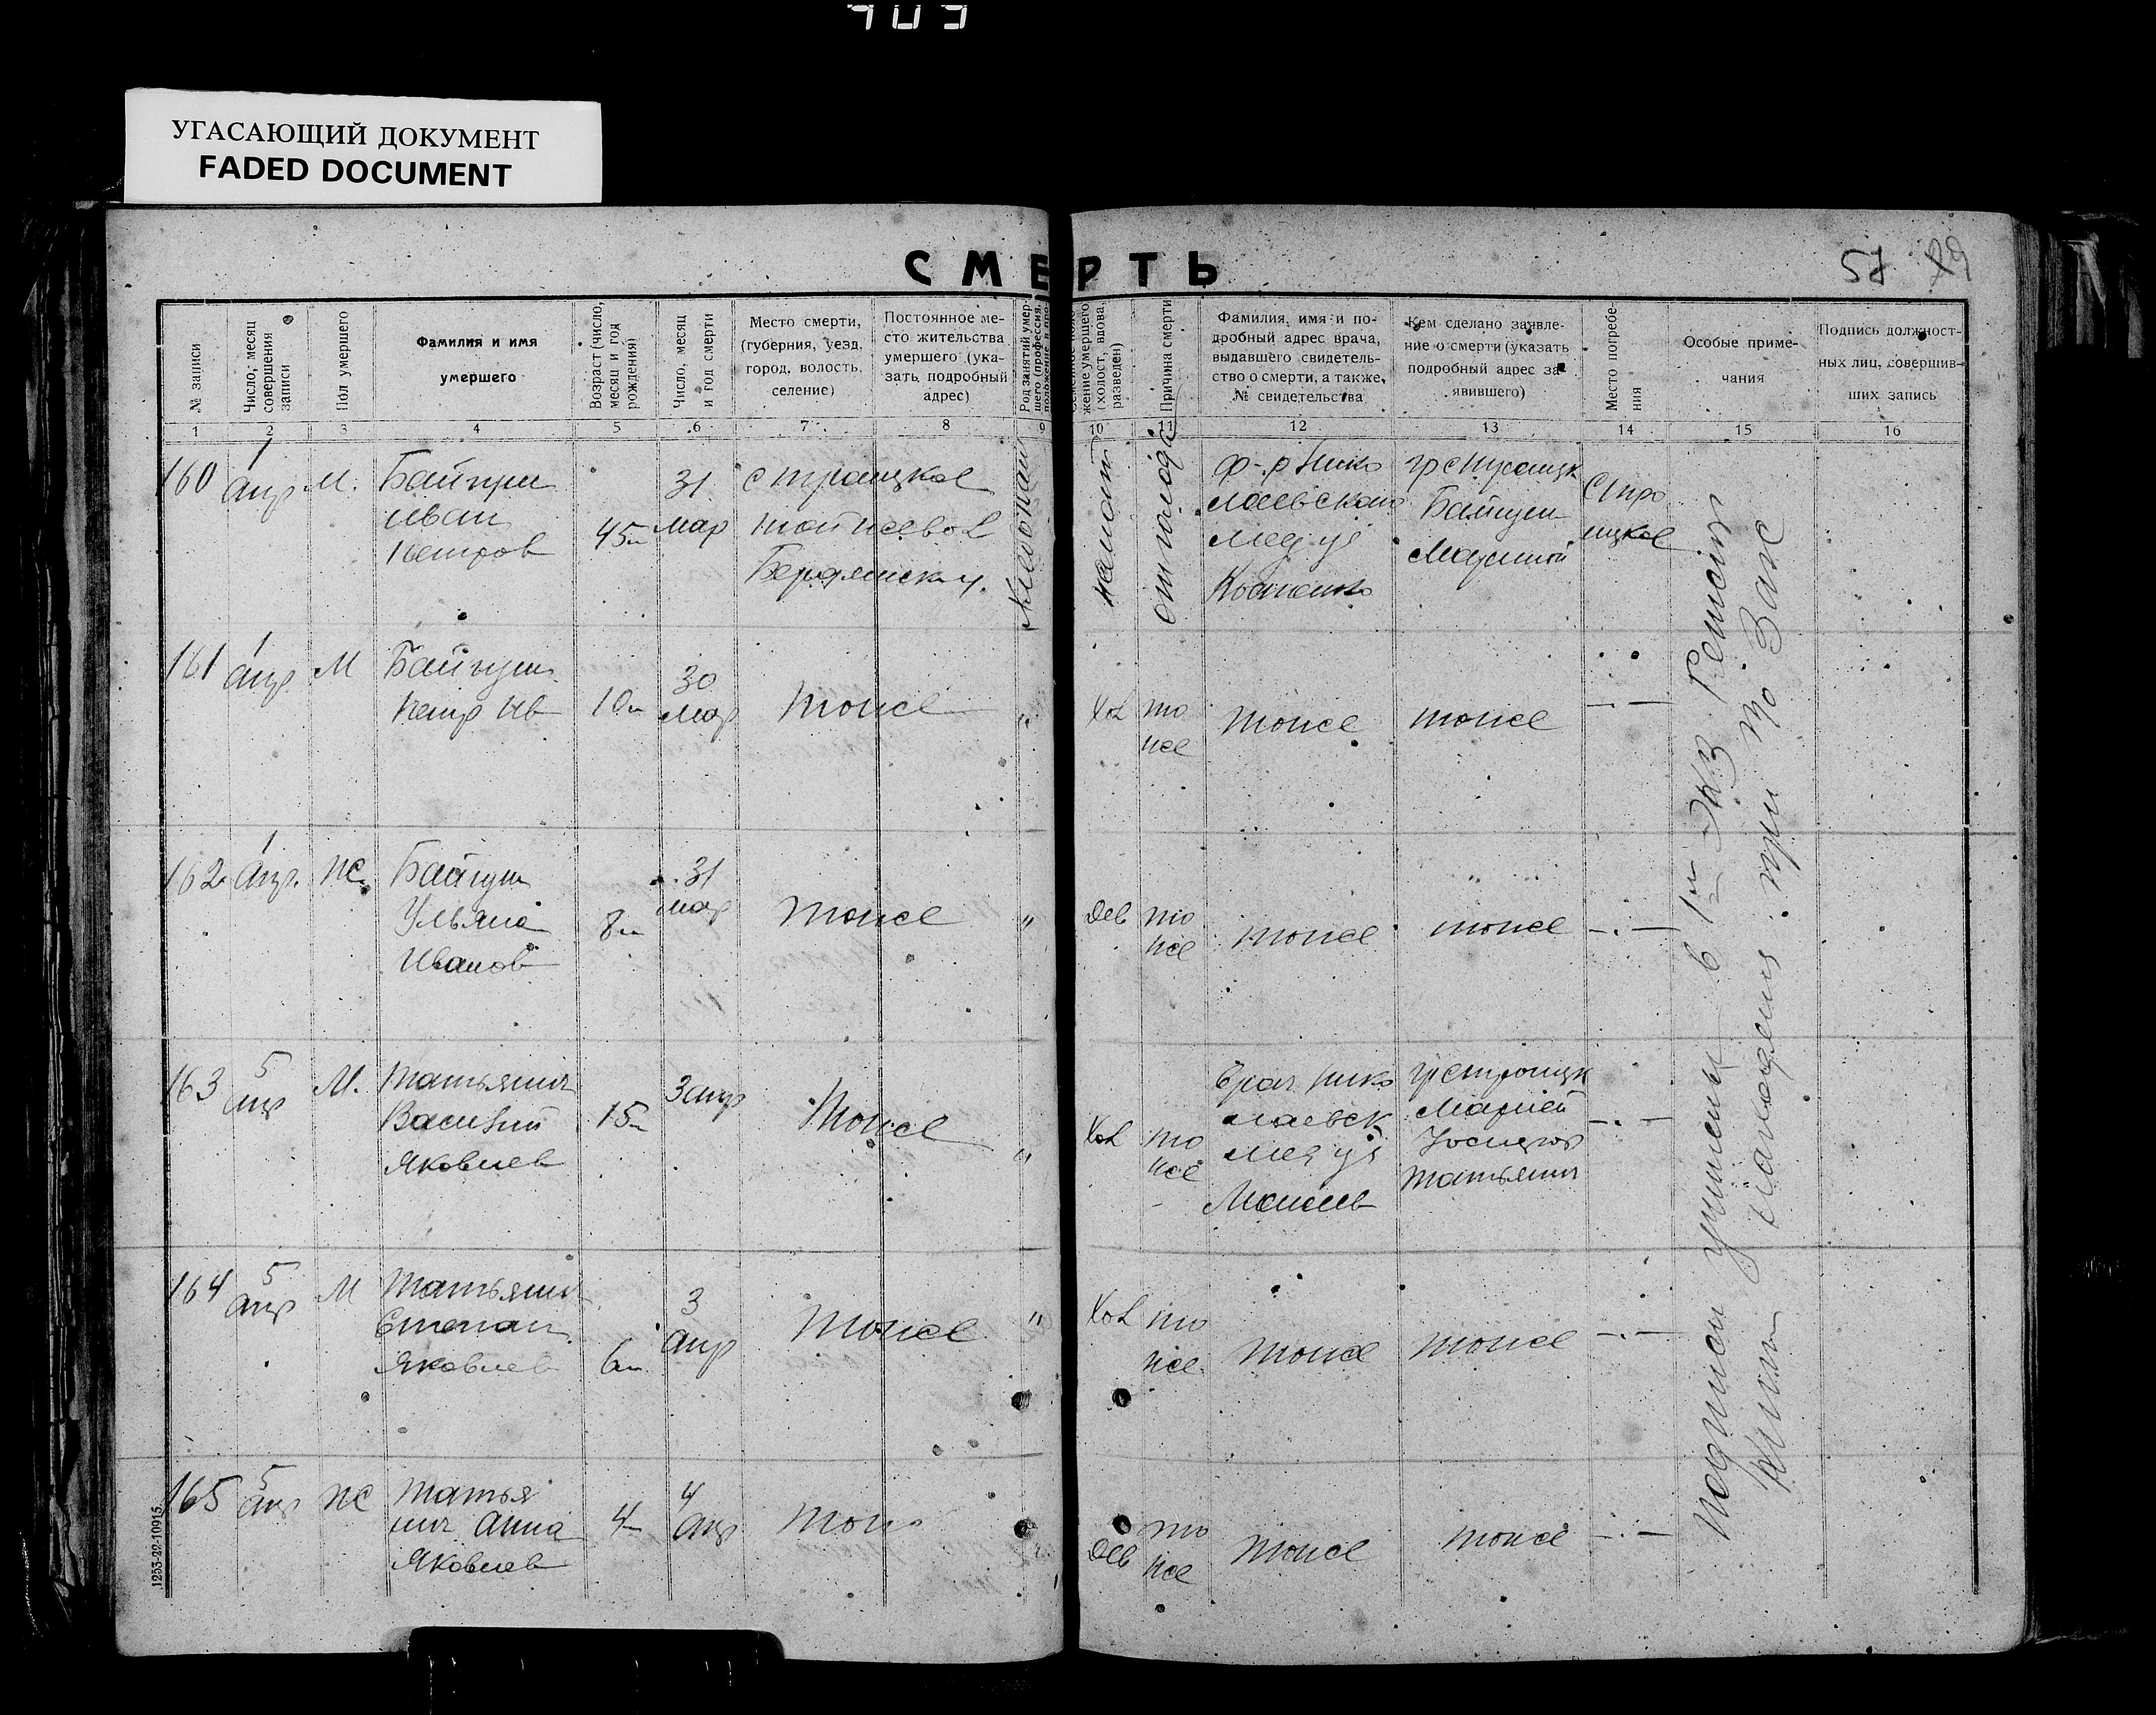 903
УГАСАЮЩИЙ ДОКУМЕНТ
FADED DOCUMENT
СМЕРТЬ
57 29
№ записи
Число, месяц совершения записи
Пол умершего
Фамилия и имя
умершего
Возраст (число, месяц и год рождения)
Число, месяц и год смерти
Место смерти,
(губерния, уезд,
город, волость,
селение)
Постоянное ме-
сто жительства
умершего (ука-
зать подробный
адрес)
Род занятий умер-
шего (профессия,
жение умершего
(холост, вдова,
разведен)
Причина смерти
Фамилия, имя и по-
дробный адрес врача,
выдавшего свидетель-
ство о смерти, а также,
№ свидетельства
Кем сделано заявле-
ние о смерти (указать
подробный адрес за-
явившего)
Место погребе-
ния
Особые приме-
чания
Подпись должност-
ных лиц, совершив-
ших запись
1 2 3 4 5 6 7 8 9 10 11 12 13 14 15 16
160
1 апр
М.
Иван
Петров
45
31 мар
с Троицкое
Бердянск у.
Хлебопаш
женат
от голода
ф-р Нико
лаевского
мед уч
гр с Троицк
С Тро
ицкое
161
1 апр.
М
Петр Ив
10
30 мар
тоже
"
Хол
то
же
тоже
тоже
-.-
162
1 апр.
Ж
Ульяна
Иванов
8
31 мар
тоже
"
дев
то
же
тоже
тоже
-.-
163
5 апр
М.
Татьянич
Василий
Яковлев
15
3 апр
тоже
"
Хол
то
же
Врач Нико
лаевск
мед уч
гр с Троицк
Марией
Татьянич
-.-
164
5 апр
М
Татьянич
Степан
Яковлев
6
3 апр
тоже
"
Хол
то
же
тоже
тоже
-.-
165
5 апр
Ж
Татья
нич Анна
Яковлев
4
4 апр
тож
дев
то
же
тоже
тоже
-.-
Подписи учинены в 1м Экз
книги нахождения при
Загс
1253-22-10915